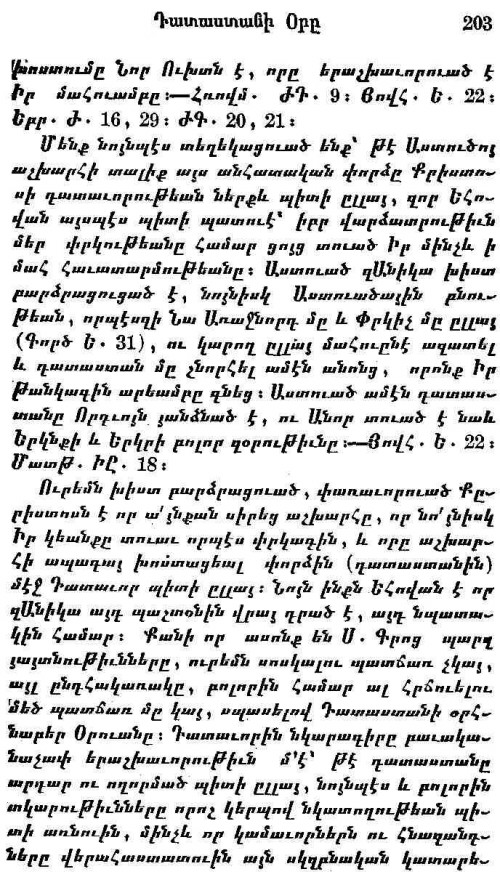 Դատաստանի Օրը 203
խոստումը Նոր Ուխտն է, որը երաշխաւորուած է
Իր մահուամբը։—Հռովմ. ԺԴ. 9։ Յովհ. Ե. 22։
Եբր. Ժ. 16, 29։ ԺԳ. 20, 21։
Մենք նոյնպէս տեղեկացուած ենք՝ թէ Աստուծոյ
աշխարհի տալիք այս անհատական փորձը Քրիստո-
սի դատաւորութեան ներքև պիտի ըլլայ, զոր Եհո-
վան այսպէս պիտի պատուէ՝ իբր վարձատրութիւն
մեր փրկութեանը համար ցոյց տուած Իր մինչև ի
մահ հաւատարմութեանը։ Աստուած զԱնիկա խիստ
բարձրացուցած է, նոյնիսկ Աստուածային բնու-
թեան, որպէսզի Նա Առաջնորդ մը և Փրկիչ մը ըլլայ
(Գործ Ե. 31), ու կարող ըլլայ մահուընէ ազատել
և դատաստան մը շնորհել ամէն անոնց, որոնք Իր
թանկագին արեամբը գնեց։ Աստուած ամէն դատաս-
տանը Որդւոյն յանձնած է, ու Անոր տուած է նաև
Երկնքի և Երկրի բոլոր զօրութիւնը։—Յովհ. Ե. 22։
Մատթ. ԻԸ. 18։
Ուրեմն խիստ բարձրացուած, փառաւորուած Քը-
րիստոսն է որ ա՛յնքան սիրեց աշխարհը, որ նո՛յնիսկ
Իր կեանքը տուաւ որպէս փրկագին, և որը աշխար-
հի ապագայ խոստացեալ փորձին (դատաստանին)
մէջ Դատաւոր պիտի ըլլայ։ Նոյն ինքն Եհովան է որ
զԱնիկա այդ պաշտօնին վրայ դրած է, այդ նպատա-
կին համար։ Քանի որ ասոնք են Ս. Գրոց պարզ
յայտնութիւնները, ուրեմն սոսկալու պատճառ չկայ,
այլ ընդհակառակը, բոլորին համար ալ հրճուելու
մեծ պատճառ մը կայ, սպասելով Դատաստանի օրհ-
նաբեր Օրուանը։ Դատաւորին նկարագիրը բաւակա-
նաչափ երաշխաւորութիւն մ՚է՝ թէ դատաստանը
արդար ու ողորմած պիտի ըլլայ, նոյնպէս և բոլորին
տկարութիւնները որոշ կերպով նկատողութեան պի-
տի առնուին, մինչև որ կամաւորներն ու հնազանդ-
ները վերահաստատուին այն սկզբնական կատարե-